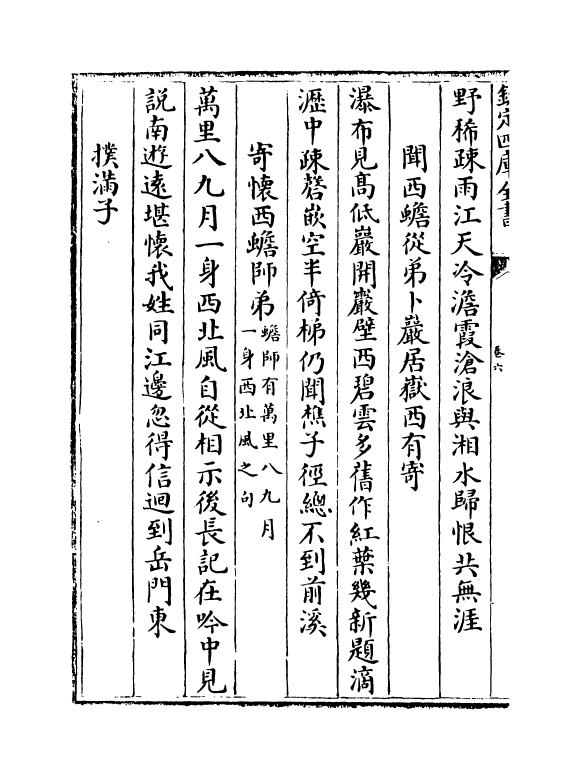 欽定四庫全書
卷六
野稀疎雨江天冷澹霞滄浪與湘水歸恨共無涯
聞西蟾從弟卜巖居嶽西有寄
瀑布見髙低巖開巖壁西碧雲多舊作紅葉幾新題滴
瀝中疎磬嵌空半倚梯仍聞樵子徑總不到前溪
寄懷西蟾師弟蟾師有萬里八九月
一身西北風之句
萬里八九月一身西北風自從相示後長記在吟中見
説南遊遠堪懐我姓同江邊忽得信迴到岳門東
撲滿子